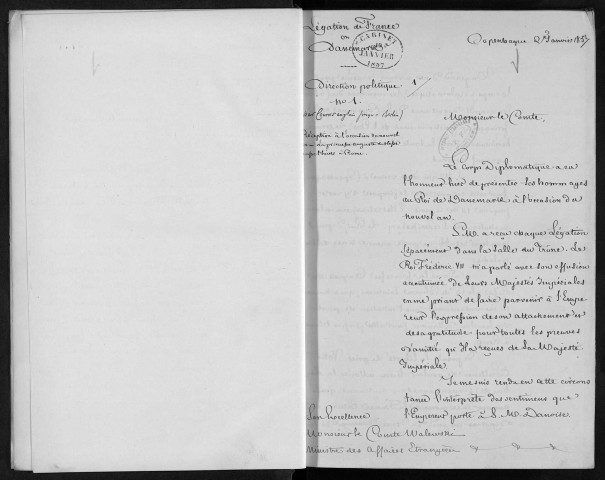 Légation de France
en
Danemark
CABINET
JANVIER
1857
Copenhague 2 Janvier 1857
Direction politique
no 1.
1
Monsieur le Comte,
Réception à l'occasion du nouvel
Le Corps Diplomatique a eu
l'honneur hier de présenter les hommages
au Roi de Danemark à l'occasion du
nouvel an.
S. M. a reçu chaque Légation
séparément dans la salle du Trône. Le
Roi Frédéric VII m'a parlé avec son effusion
accoutumée de Leurs Majestés Impériales
en me priant de faire parvenir à l'Empe-
reur l'expression de son attachement et
de sa gratitude pour toutes les preuves
d'amitié qu'Il a reçues de Sa Majesté
Impériale.
Je me suis rendu en cette circons
tance l'interprète des sentimens que
l'Empereur porte à S. M. Danoise.
Son Excellence
Monsieur le Comte Walewski
Ministre des Affaires Etrangères